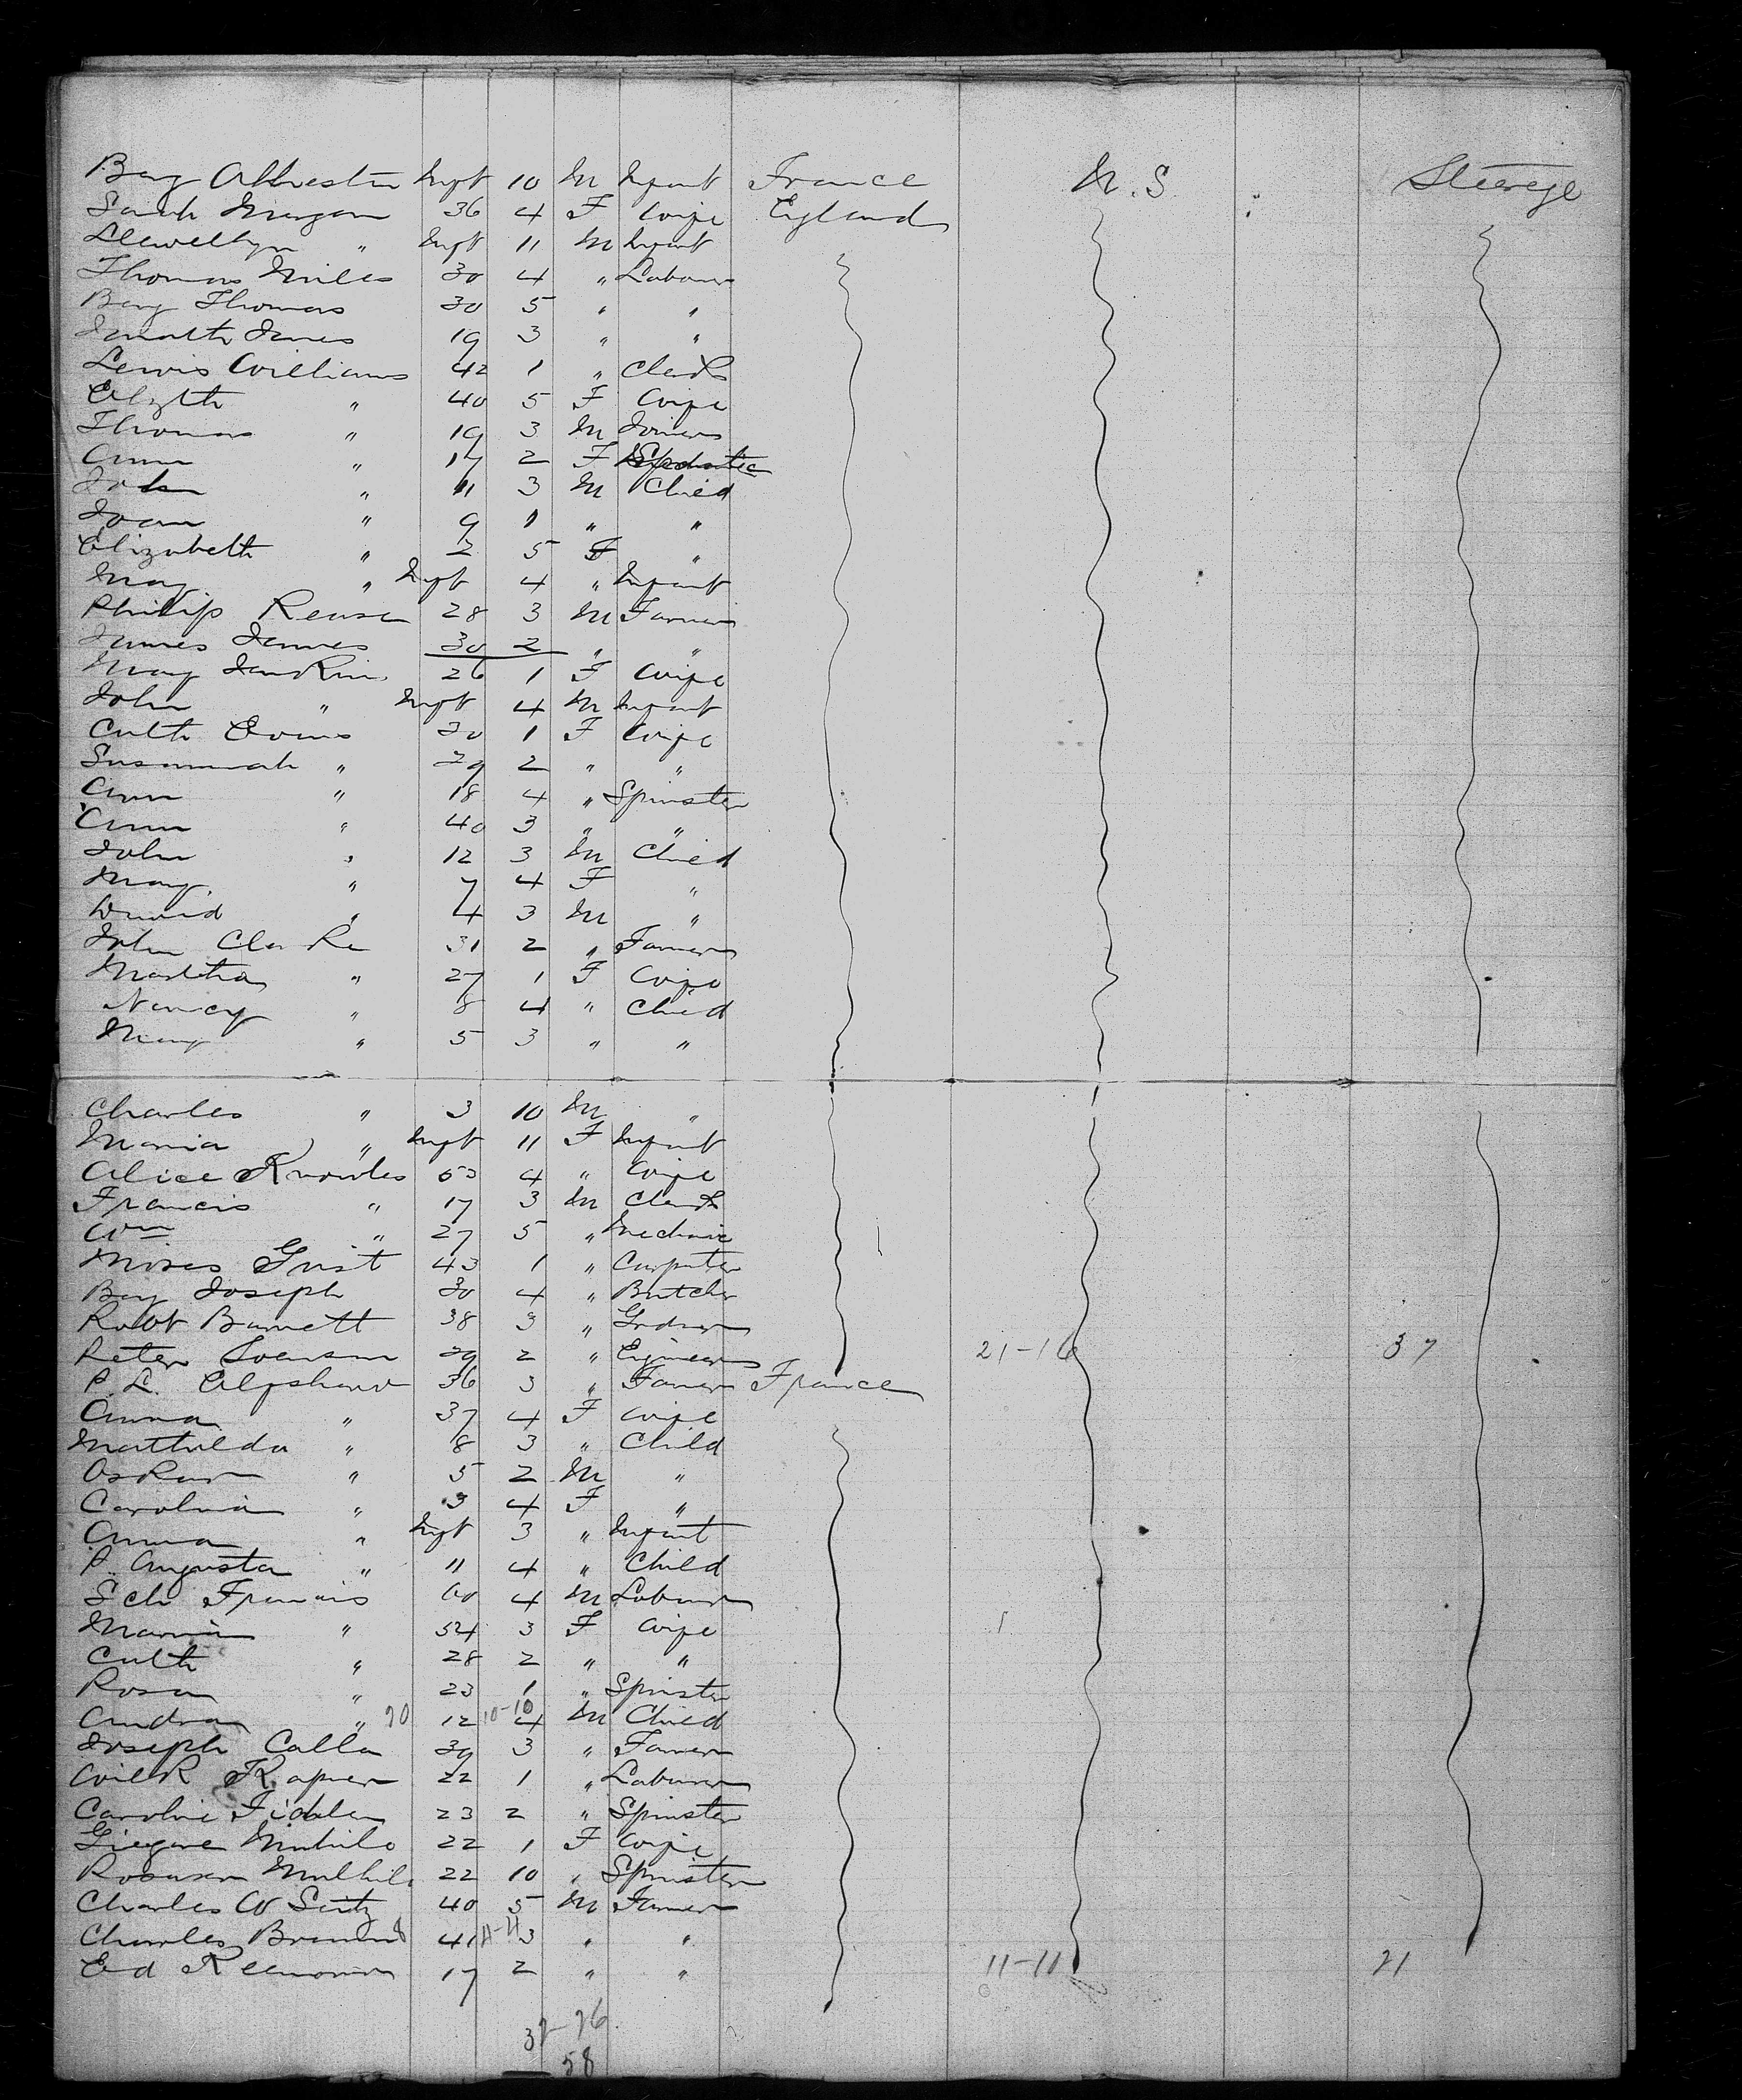 Inft 10 M Infant France U.S. Steerage
Sarah Morgan 36 4 F Wife England
Llewellyn " Inft 11 M Infant
Thomas Miles 30 4 " Labourer
Benj Thomas 30 5 " "
James 19 3 " "
Lewis Williams 42 1 " Clerk
Elizth " 40 5 F Wife
Thomas " 19 3 M Joiner
Ann " 17 2 F
John " 11 3 M Child
" 9 1 " "
Elizabeth " 2 5 F "
May " Inft 4 " Infant
Philip 28 3 M Farmer
James James 30 2 " "
May Jenkin 26 1 F Wife
John " Inft 4 M Infant
Cath Evans 30 1 F Wife
Susannah " 29 2 " "
Ann " 18 4 " Spinster
Ann " 40 3 " "
John " 12 3 M Child
May " 7 4 F "
David " 4 3 M "
John Clarke 31 2 " Farmer
Martha " 27 1 F Wife
Nancy " 8 4 " Child
May " 5 3 " "
Charles " 3 10 M "
Maria " Inft 11 F Infant
Alice Knowles 53 4 " Wife
Francis " 17 3 M Clerk
Wm " 27 5 " Mechanic
Moses Grist 43 1 " Carpenter
Benj Joseph 30 4 " Butcher
Robt Barnett 38 3 " Grdner
Peter 29 2 " Engineer 21-16 37
P. L. 36 3 " Farmer France
Anna " 37 4 F Wife
Mathilda " 8 3 " Child
Oskar " 5 2 M "
Carolina " 3 4 F "
Anna " Inft 3 " Infant
P. Augusta " 11 4 " Child
Sch 60 4 M Labourer
Maria " 54 3 F Wife
Cath " 28 2 " "
Rosa " 23 1 " Spinster
" 20 12 10-10 4 M Child
Joseph Calla 39 3 " Farmer
22 1 " Labourer
Caroline Fidler 23 2 " Spinster
22 1 F Wife
22 10 " Spinster
Charles W Seitz 40 5 M Farmer
Charles 41 11-11 3 " "
Ed 17 2 " " 11-11 21
32-26
58